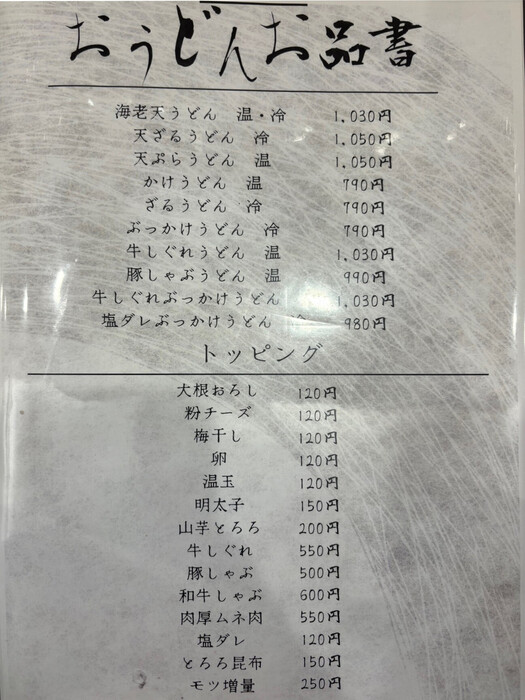 おうどんお品書
海老天うどん 温・冷 1,030円
天ざるうどん 冷 1,050円
天ぷらうどん 温 1,050円
かけうどん 温 790円
ざるうどん 冷 790円
ぶっかけうどん 冷 790円
牛しぐれうどん 温 1,030円
豚しゃぶうどん 温 990円
牛しぐれぶっかけうどん 1,030円
塩ダレぶっかけうどん 980円
トッピング
大根おろし 120円
粉チーズ 120円
梅干し 120円
卵 120円
温玉 120円
明太子 150円
山芋とろろ 200円
牛しぐれ 550円
豚しゃぶ 500円
和牛しゃぶ 600円
肉厚ムネ肉 550円
塩ダレ 120円
とろろ昆布 150円
モツ増量 250円